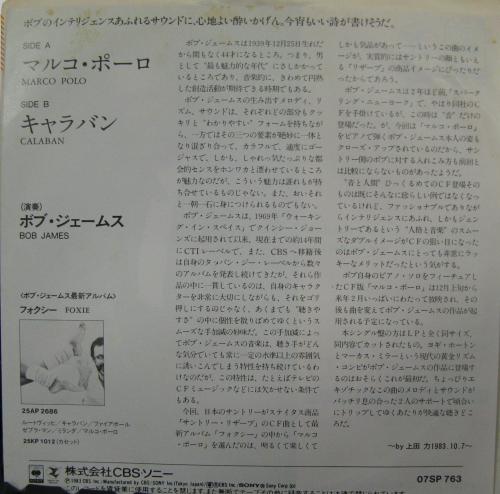 ボブのインテリジェンスあふれるサウンドに、心地よい酔いかげん。今宵もいい詩が書けそうだ。
SIDE A
マルコ・ポーロ
MARCO POLO
SIDE B
キャラバン
CALABAN
〈演奏〉
ボブ・ジェームス
BOB JAMES
〈ボブ・ジェームス最新アルバム〉
フォクシー FOXIE
25AP 2686
ルードヴィッヒ/キャラバン/ファイアボール
ゼブラ・マン/ミランダ/マルコ・ポーロ
25KP 1012(カセット)
ボブ・ジェームスは1939年12月25日生れだ
から間もなく44才になるところ。つまり、男
として“最も魅力的な年代”にさしかかって
いるところであり、音楽的に、きわめて円熟
した創造活動が期待できる時期でもある。
ボブ・ジェームスの生み出すメロディ、リ
ズム、サウンドは、それぞれどの部分もクッ
キリと“わかりやすい”フォームを持ちなが
ら、一方ではその三つの要素が絶妙に一体と
なり混ざり合って、カラフルで、適度にゴー
ジャスで、しかも、しゃれっ気たっぷりな都
会的センスをホンワカと漂わせているところ
が魅力なのだが、こういう魅力は誰れもが持
ち合せているものじゃない。また、おいそれ
と一朝一石に身につけられるものでもない。
ボブ・ジェームスは、1969年「ウォーキン
グ・イン・スペイス」でクインシー・ジョー
ンズに起用されて以来、現在までの約14年間
にCTIレーベルで、また、CBSへ移籍後
は自身のタッパン・ジー・レーベルから数々
のアルバムを発表し続けてきたが、それら作
品の中に一貫しているのは、自身のキャラク
ターを非常に大切にしながらも、それをゴリ
押しにするのじゃなく、あくまでも“聴きや
すさ”の中に個性を散りばめてゆくというス
ムーズな手加減の妙味だ。この手加減によっ
てボブ・ジェームスの音楽は、聴き手がどん
な気分でいても常に一定の水準以上の雰囲気
に誘いこんでしまう特性を持ち続けているわ
けなのだが、この特性は、たとえばテレビの
CFミュージックなどには欠かせない条件で
もある。
今回、日本のサントリーがステイタス商品
「サントリー・リザーブ」のCF曲として最
新アルバム「フォクシー」の中から「マルコ・
ポーロ」を選んだのは、明るくて楽しくて
しかも気品があって……というこの曲のイメ
ージが、本質的にはサントリーの酒ともいえ
る「リザーブ」の商品イメージにぴったりだ
ったからであろう。
ボブ・ジェームスは2年ほど前、「スパーク
リング・ニューヨーク」で、やはり同社のC
Fを手掛けているが、この時は“音”だけの
登場だった。が、今回は「マルコ・ポーロ」
をピアノで弾くボブ・ジェームス本人の姿も
クローズ・アップされているのだから、サン
トリー側のボブに対する入れこみ方も前回と
は比較にならないものがあったようだ。
“音と人間”ひっくるめてのCF登場そのも
のは既にそんなに珍らしい例ではなくなっ
ているけれど、ファッショナブルでありなが
らインテリジェンスにあふれ、しかもジェン
トリであるという“人格と音楽”のスムー
スなダブルイメージがCFの狙い目になった
のはボブ・ジェームスにとっても非常にラッ
キーなメリットだったという気がする。
ボブ自身のピアノ・ソロをフィーチュアし
たCF版「マルコ・ポーロ」は12月上旬から
来年2月いっぱいにわたって放映され、その
後も曲を変えてボブ・ジェームスの作品が起
用される予定になっている。
本シングル盤の方はLPと全く同サイズ、
同内容でカットされたもの。ヨギ・ホートン
とマーカス・ミラーという現代の黄金リズム
・コンビがボブ・ジェームスの作品に登場す
るのはおそらくこれが最初だ。ちょっぴりエ
キゾチックなこの曲のメロディとサウンドが
バッチリ息の合った2人のサポートで頭合い
にトリップしてゆくあたりが快適な聴きどころだ。
〜by 上田 力 1983.10.7〜
株式会社CBS・ソニー
07SP 763